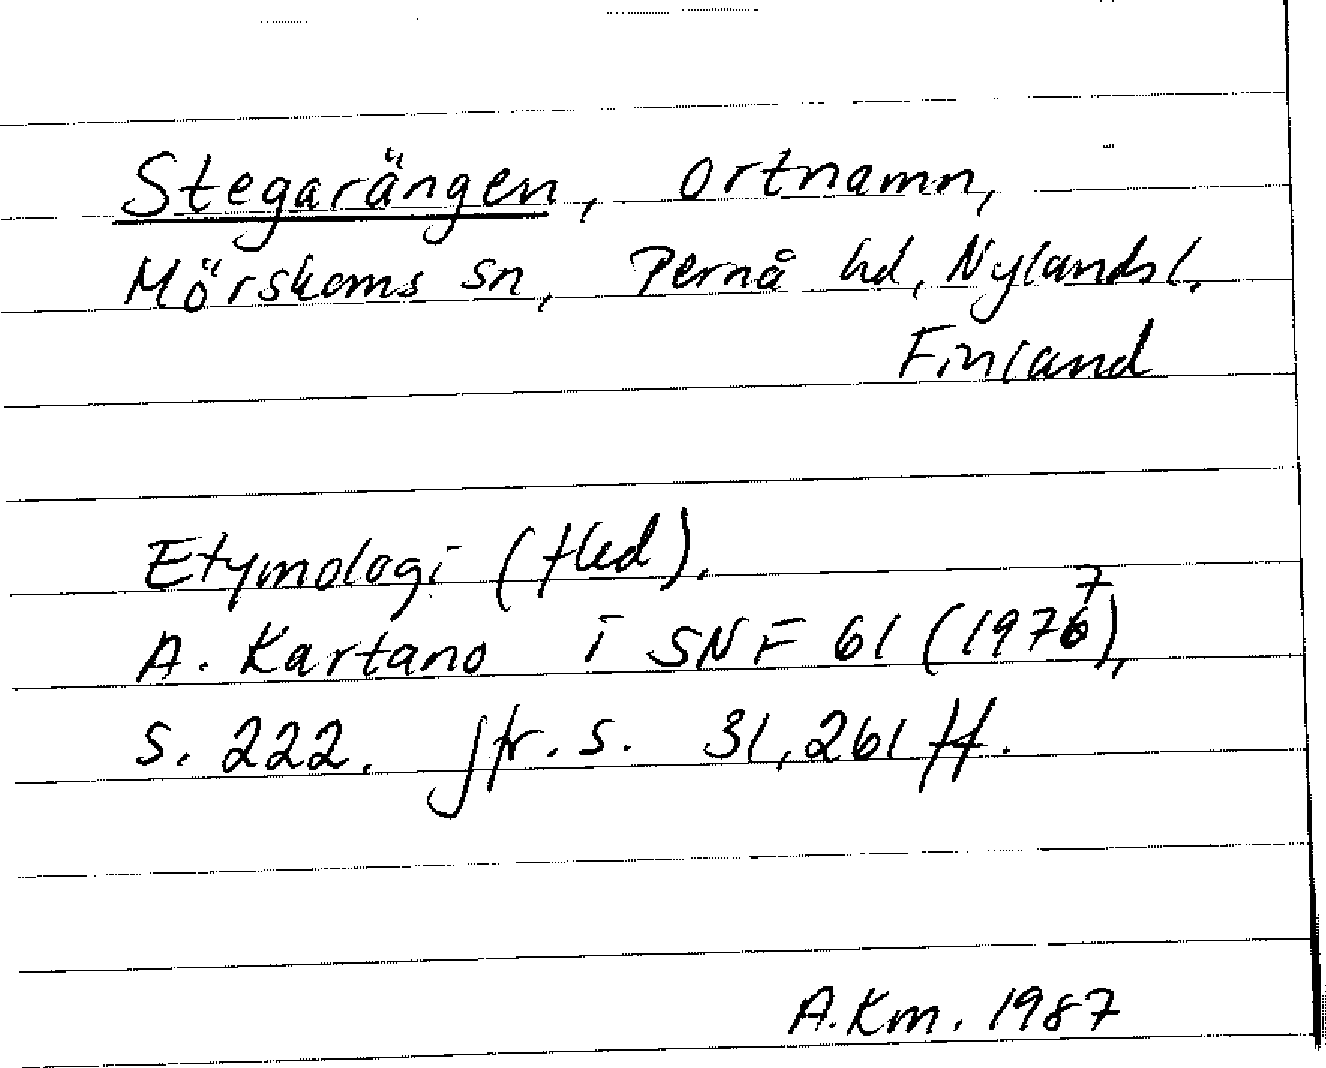 Stegarängen, ortnamn,
Mörskoms sn, Pernå hd, Nylands l.
Finland
Etymologi (fled).
A. Kartano i SNF 61 (1977),
s. 222. Jfr. s. 31, 261 ff.
A.Km. 1987